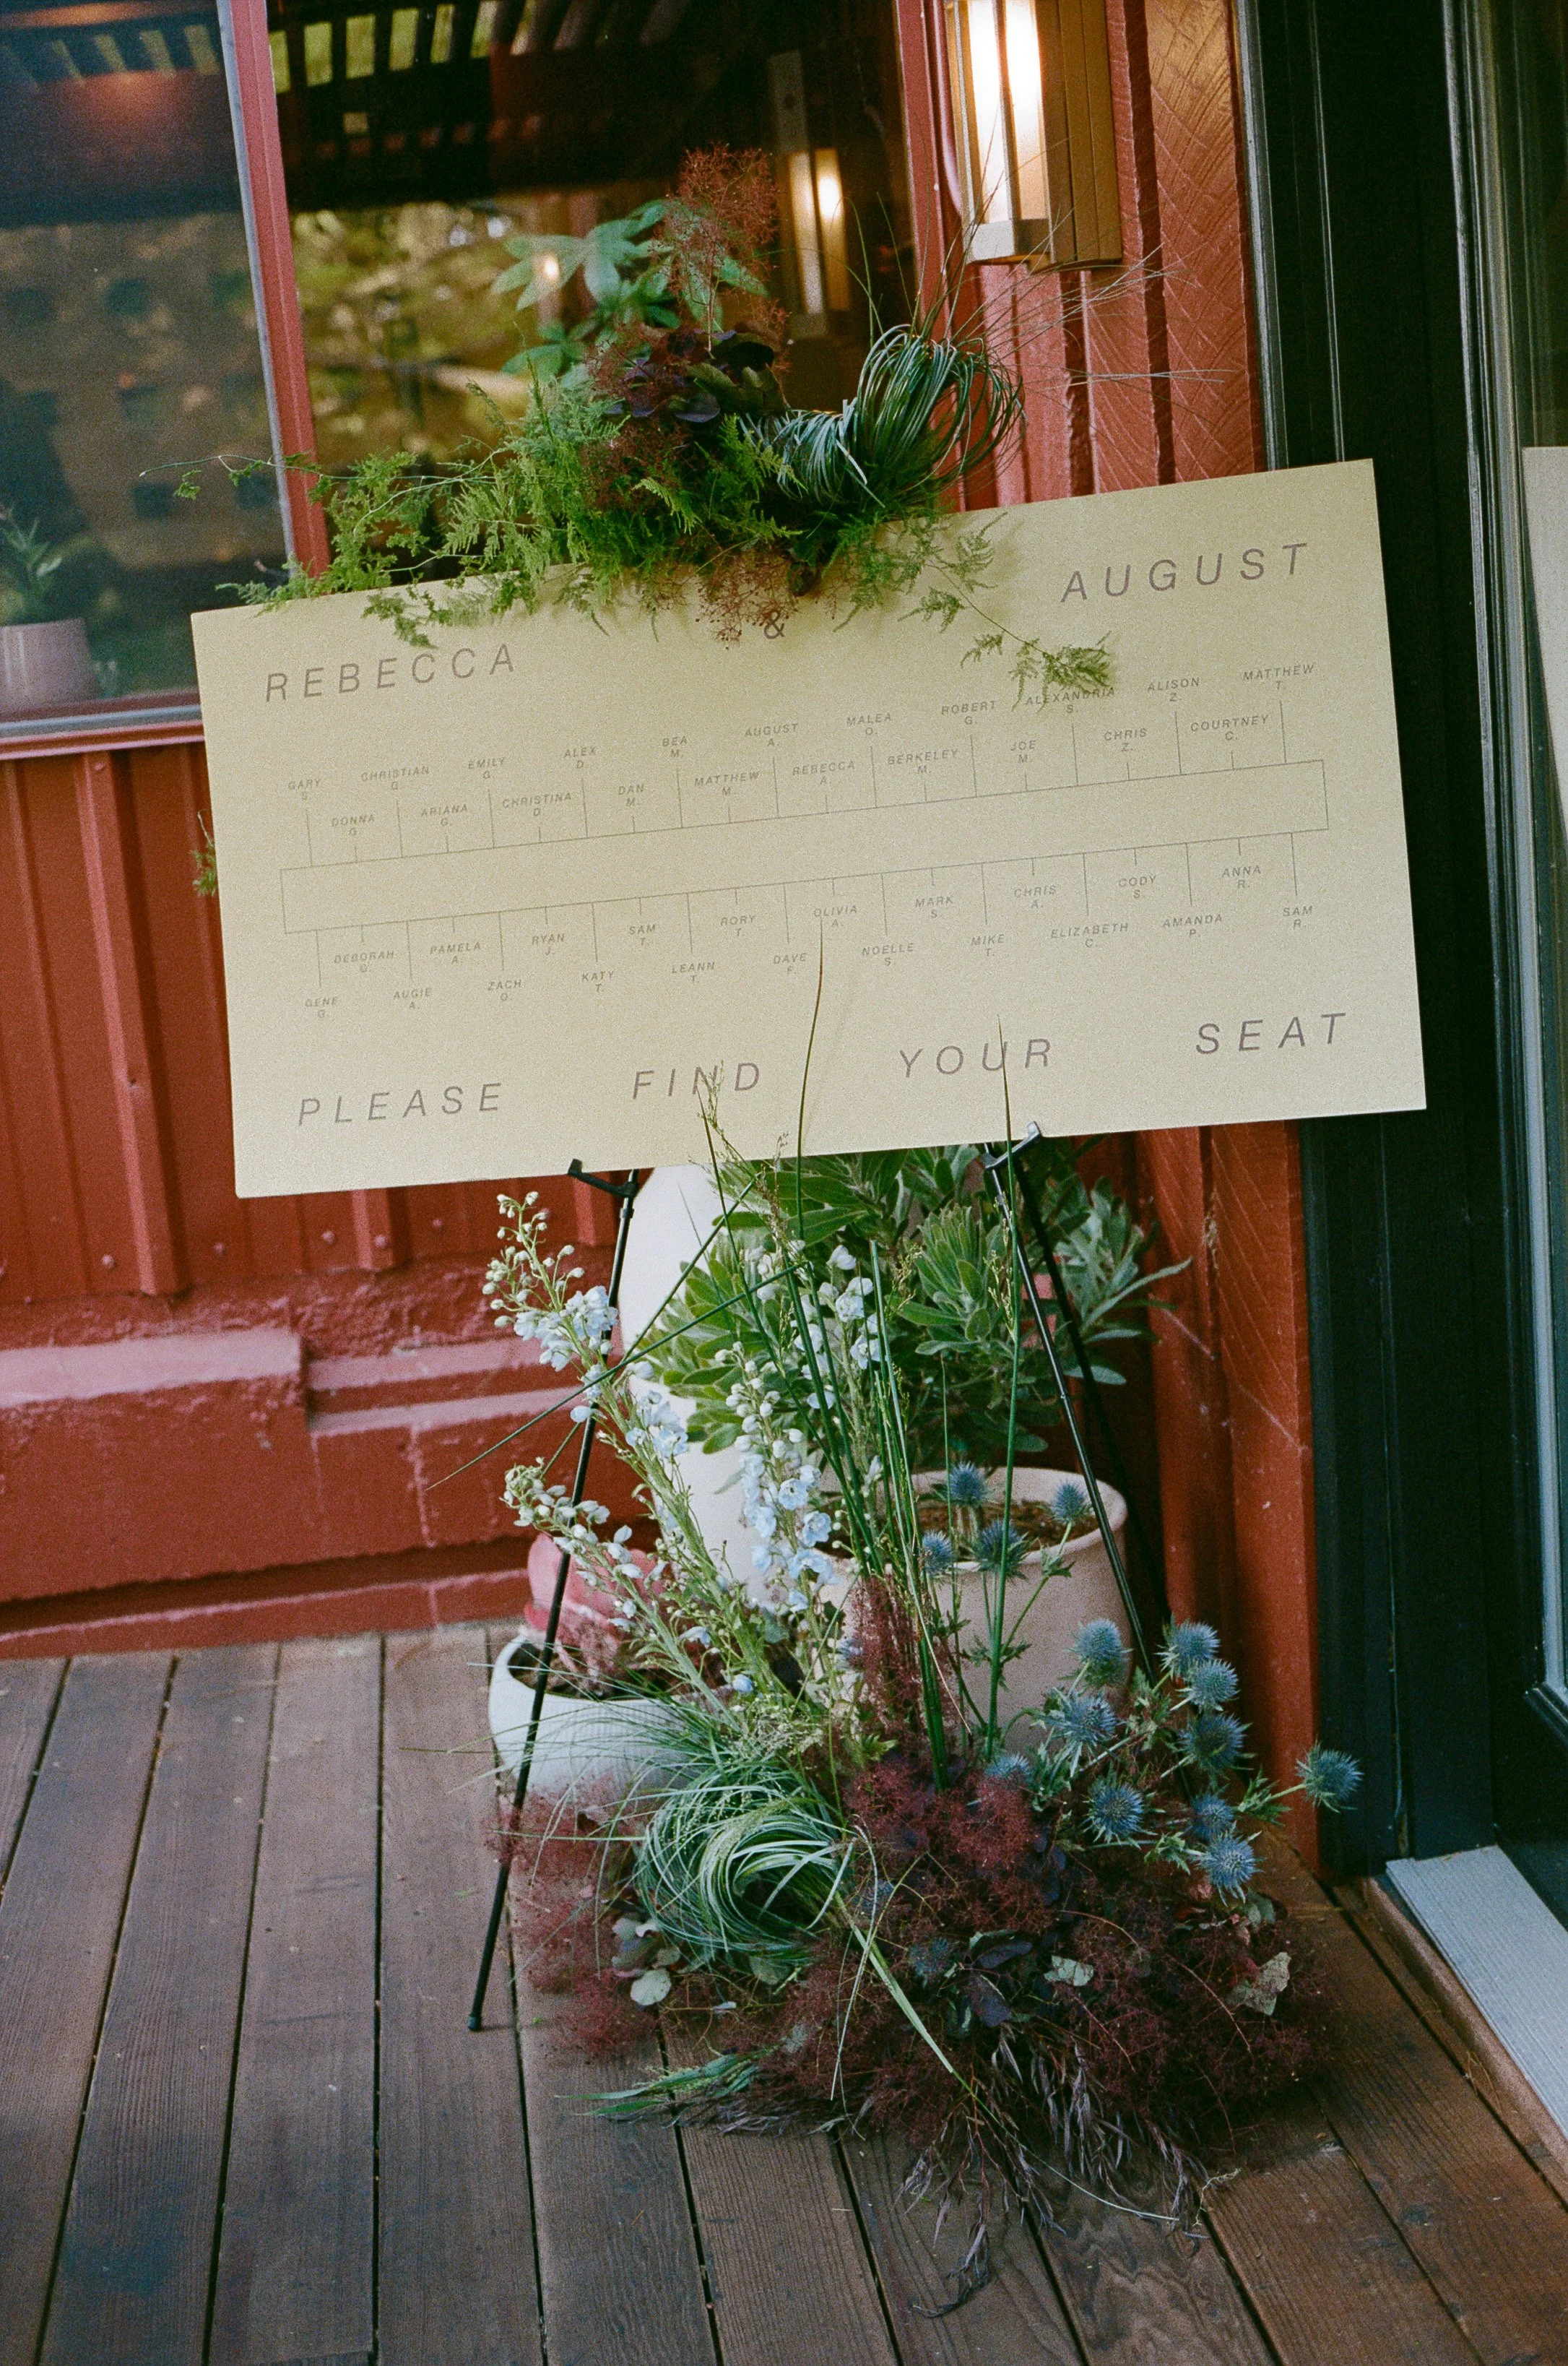 REBECCA & AUGUST
GARY CHRISTIAN EMILY ALEX BEA AUGUST MALEA ROBERT ALEXANDRIA ALISON MATTHEW
S. G. G. D. M. A. O. G. S. Z. T.
DONNA ARIANA CHRISTINA DAN MATTHEW REBECCA BERKELEY JOE CHRIS COURTNEY
G. G. D. M. M. A. M. M. Z. C.
DEBORAH PAMELA RYAN SAM RORY OLIVIA MARK CHRIS CODY ANNA
G. A. J. T. T. A. S. A. S. R.
GENE AUGIE ZACH KATY LEANN DAVE NOELLE MIKE ELIZABETH AMANDA SAM
G. A. O. T. T. F. S. T. C. P. R.
PLEASE FIND YOUR SEAT